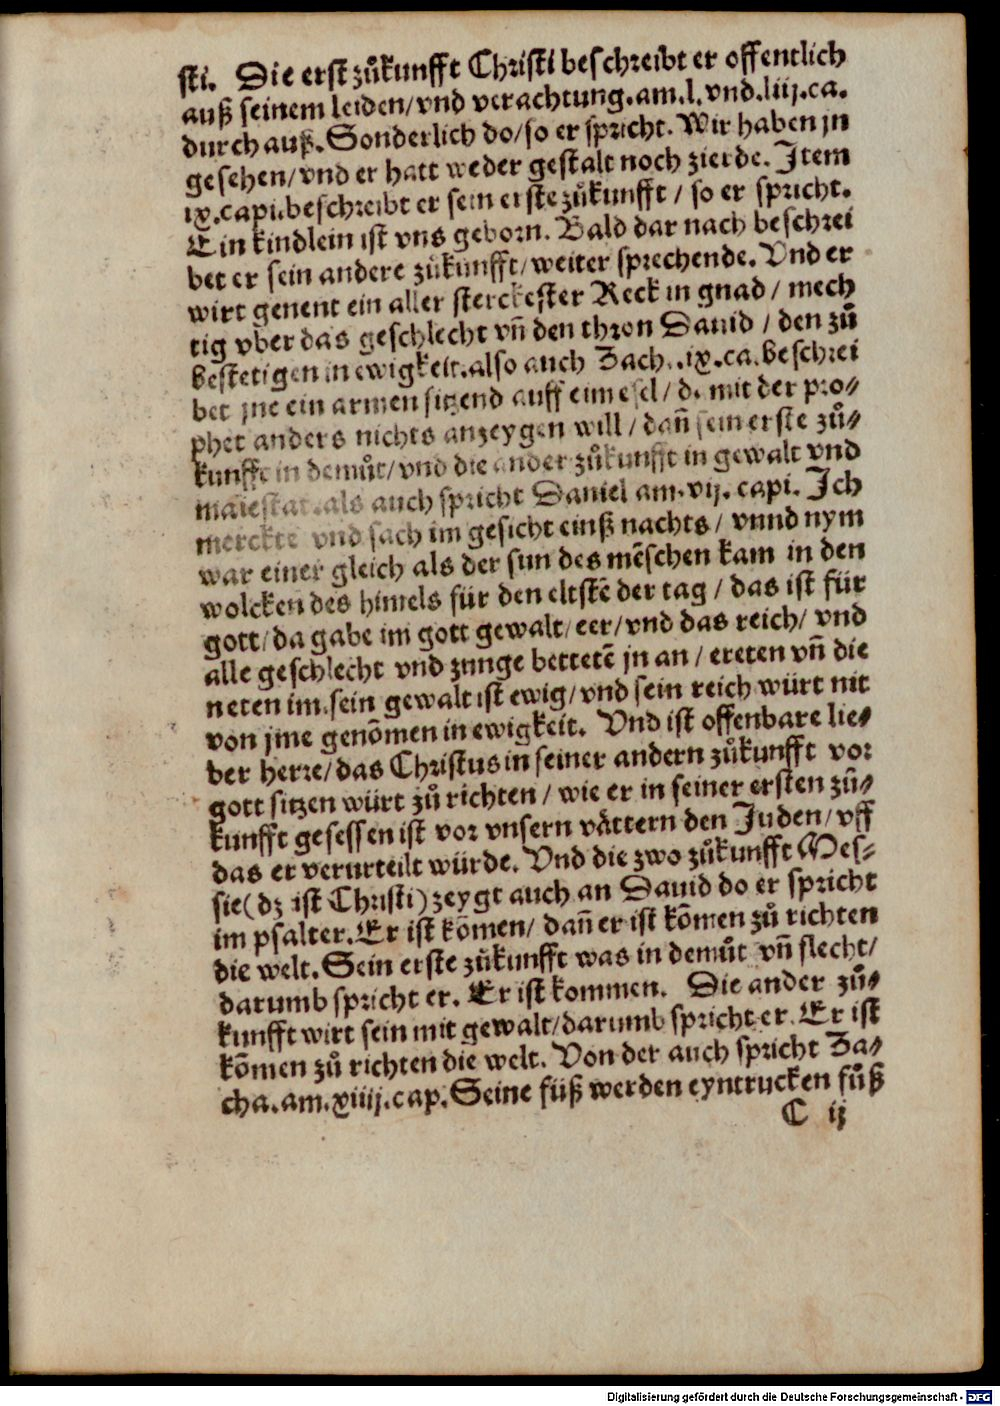 sti. Die erst zůkunfft Christi beschreibt er offentlich
auß seinem leiden/vnd verachtung.am.l.vnd.liij.ca.
durch auß.Sonderlich do/so er spricht.Wir haben jn
gesehen/vnd er hatt weder gestalt noch zierde.Item
ix.capi.beschreibt er sein erste zůkunfft/so er spricht.
Ein kindlein ist vns geborn.Bald dar nach beschrei
bet er sein andere zůkunfft/weiter sprechende.Vnd er
wirt genent ein aller sterckester Reck in gnad/mech
tig vber das geschlecht vñ den thron Dauid/den zů
bestetigen in ewigkeit.also auch Zach..ix.ca.beschrei
bet jne ein armen sitzend auff eim esel/ mit der pro⸗
phet anders nichts anzeygen will/dañ sein erste zů⸗
kunfft in demůt/vnd die ander zůkunfft in gewalt vnd
maiestat.als auch spricht Daniel am.vij.capi.Ich
merckte vnd sach im gesicht einß nachts/vnnd nym
war einer gleich als der sun des mẽschen kam in den
wolcken des himels für den eltstẽ der tag/das ist für
gott/da gabe im gott gewalt/eer/vnd das reich/vnd
alle geschlecht vnd zunge bettetẽ jn an/ereten vñ die
neten im.sein gewalt ist ewig/vnd sein reich würt nit
von jme genõmen in ewigkeit. Vnd ist offenbare lie⸗
ber herre/das Christus in seiner andern zůkunfft vor
gott sitzen würt zů richten/wie er in seiner ersten zů⸗
kunfft gesessen ist vor vnsern vättern den Juden/vff
das er verurteilt würde.Vnd die zwo zůkunfft Mes⸗
sie(dz ist Christi)zeygt auch an Dauid do er spricht
im psalter.Er ist kõmen/dañ er ist kõmen zů richten
die welt.Sein erste zůkunfft was in demůt vñ slecht/
darumb spricht er.Er ist kommen. Die ander zů⸗
kunfft wirt sein mit gewalt/darumb spricht er.Er ist
kõmen zů richten die welt.Von der auch spricht Za⸗
cha.am.xiiij.cap.Seine füß werden eyntrucken fůß
C ij
Digitalisierung gefördert durch die Deutsche Forschungsgemeinschaft - DFG